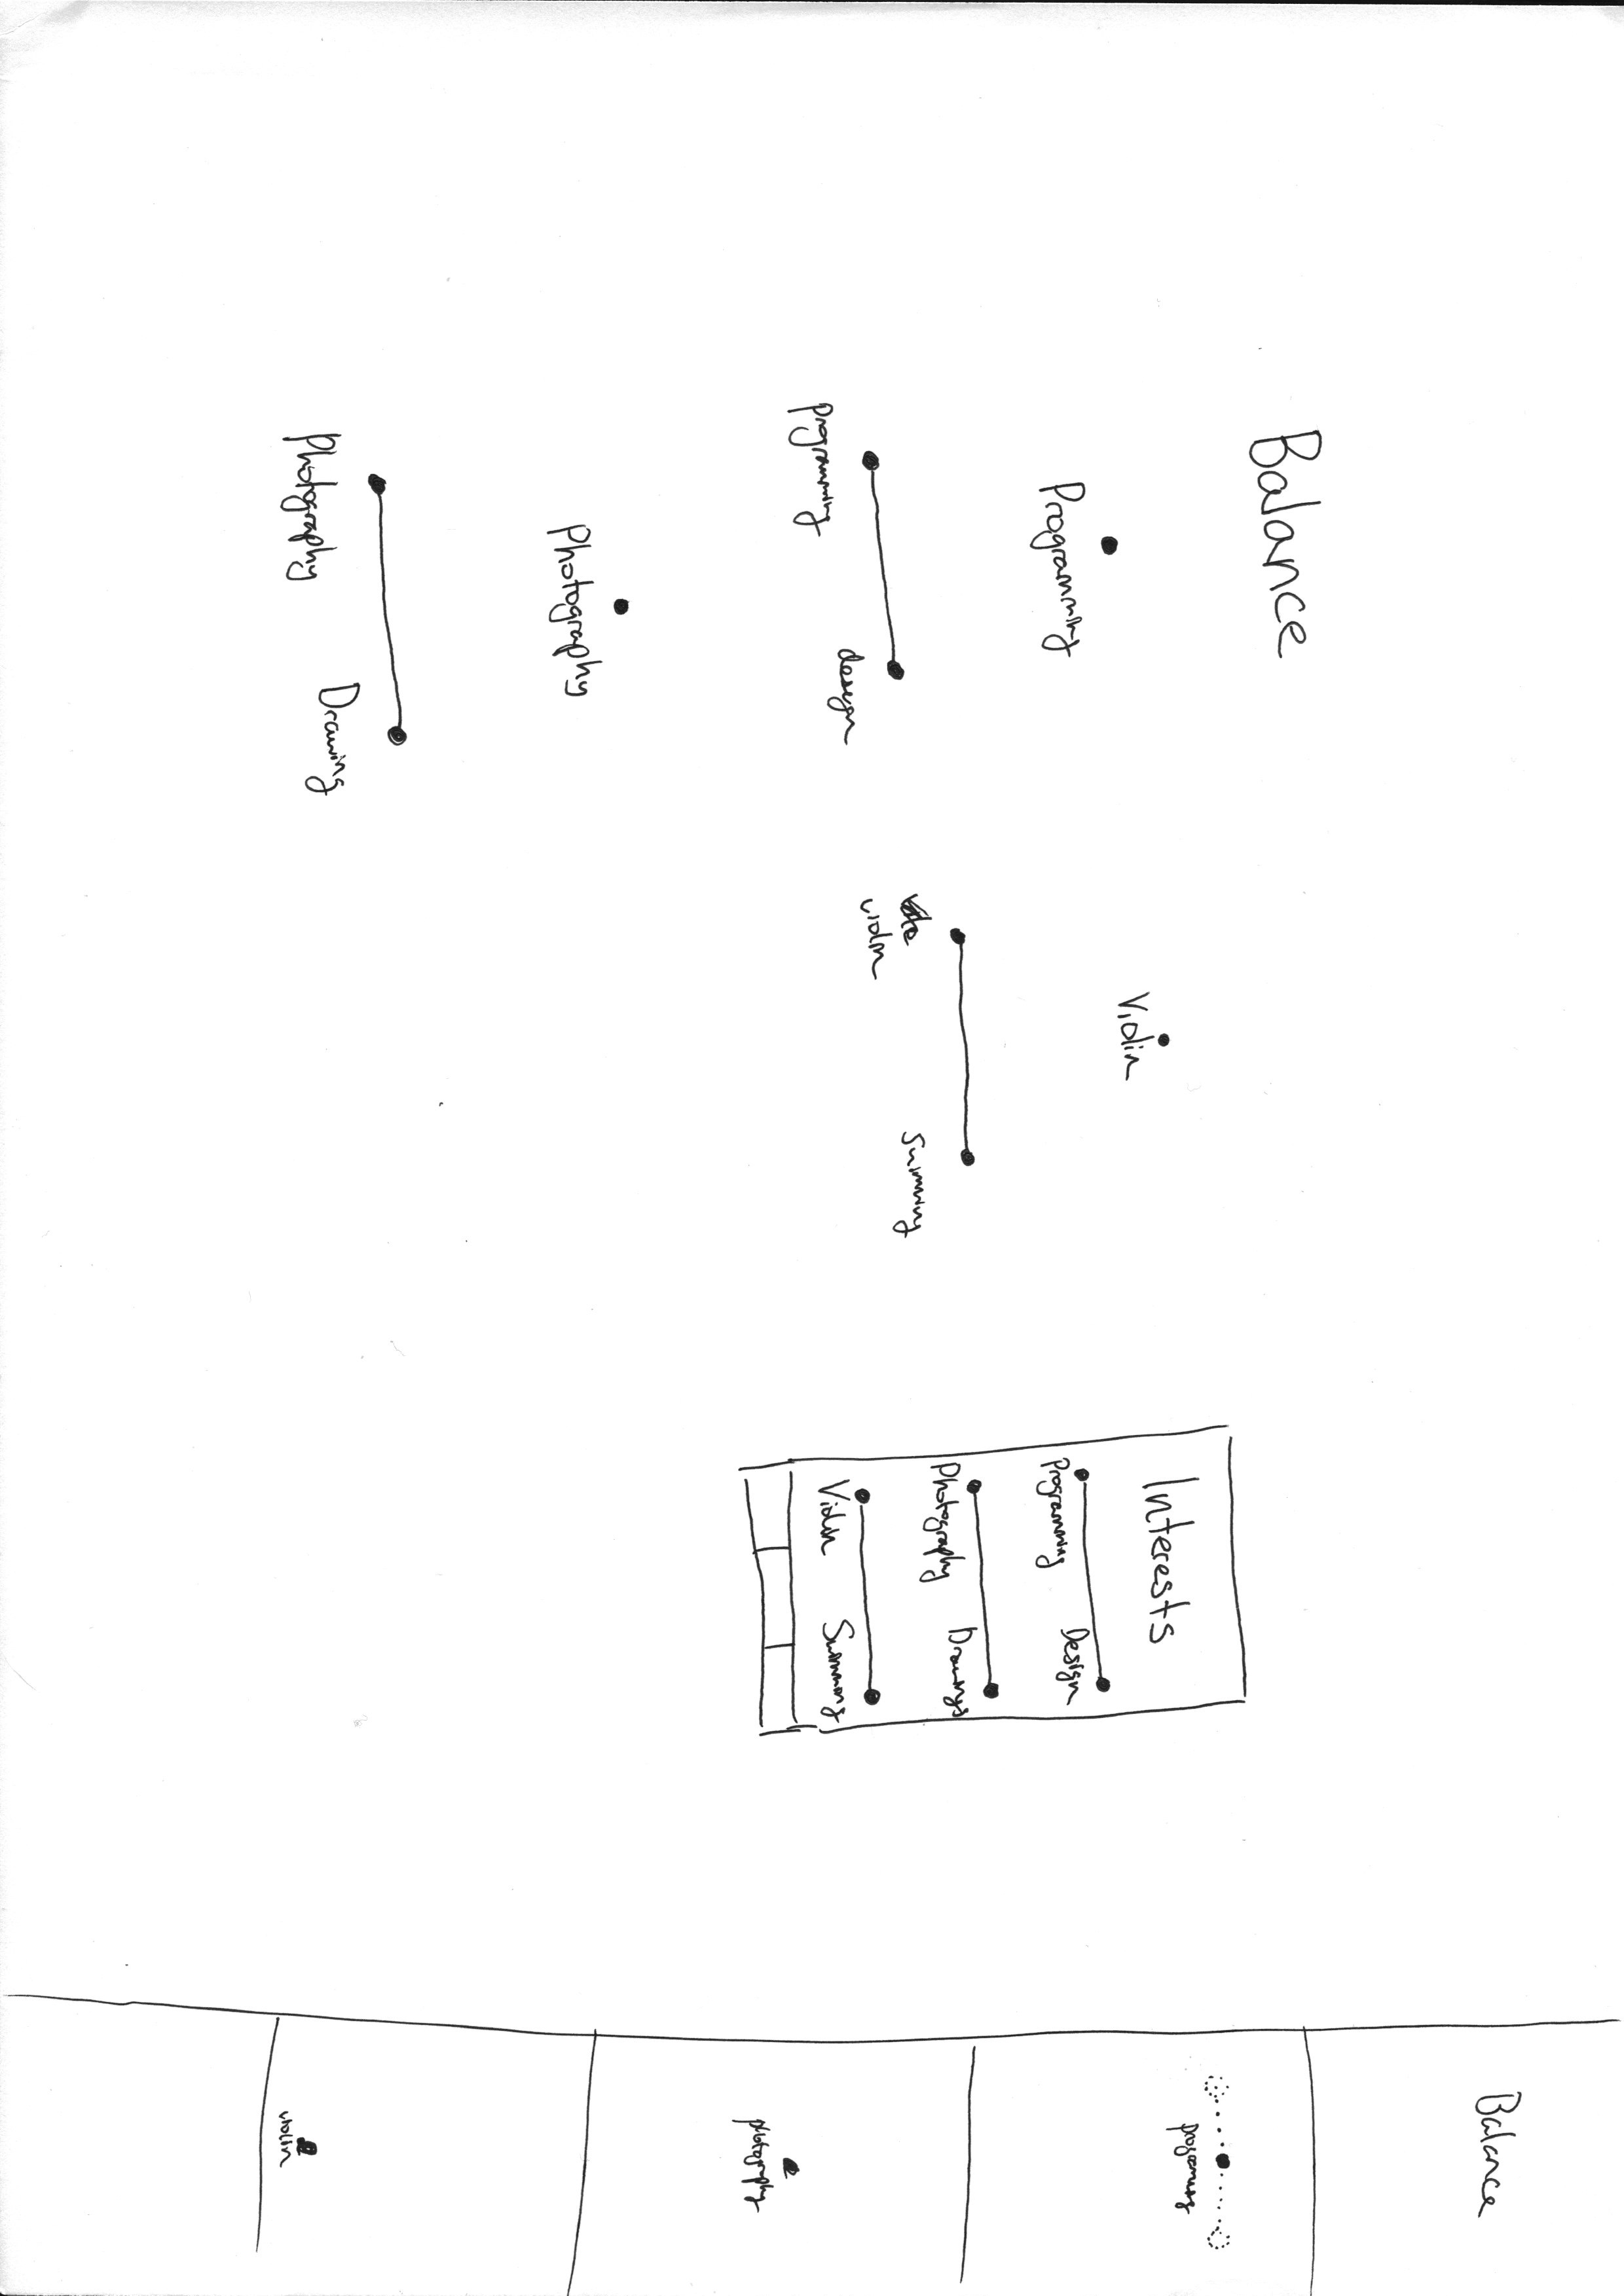 Balance
Programming
programming design
Photography
Photography Drawing
Violin
violin Swimming
Interests
Programming Design
Photography Drawings
Violin Swimming
Balance
programming
photography
violin